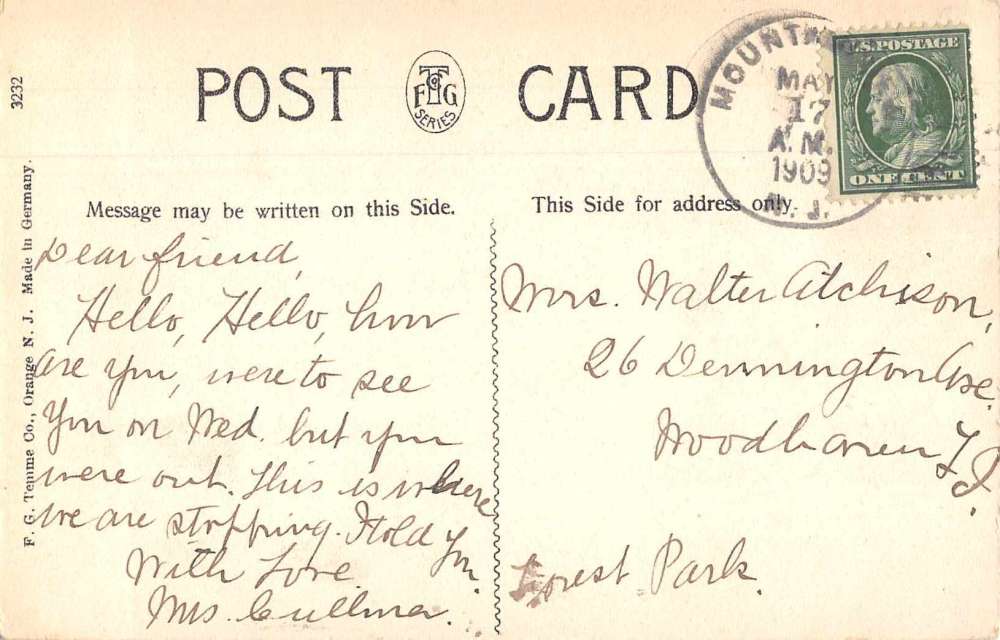 3232
POST CARD
F T & G
SERIES
MOUNTA
MAY
17
A.M.
1909
N. J.
U.S. POSTAGE
ONE CENT
F. G. Temme Co., Orange N. J. Made in Germany.
Message may be written on this Side.
Dear friend,
Hello, Hello, how
are you, were to see
you on Wed. but you
were out. This is where
we are stopping. I told you
With Love
Mrs
This Side for address only.
Mrs. Walter Atchison,
26 Dennington Ave.
Woodhaven L I.
Forest Park.